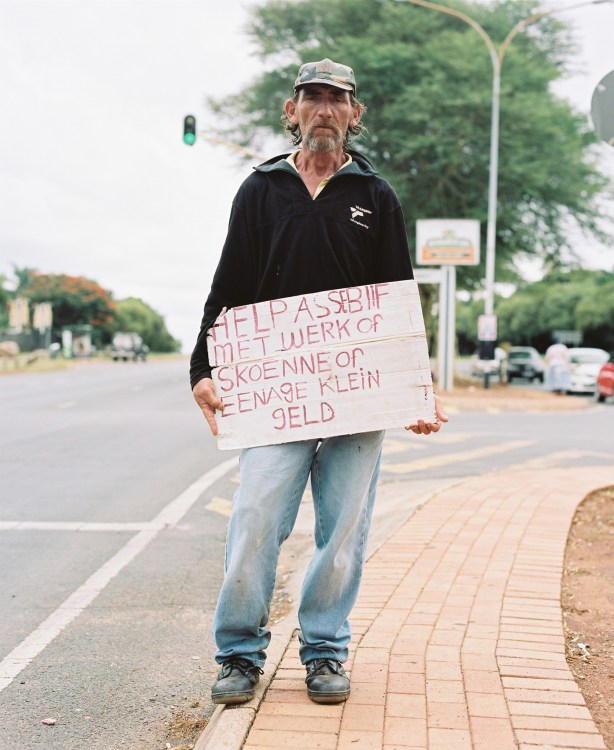 HELP ASSEBLIF
MET WERK OF
SKOENNE OF
EENAGE KLEIN
GELD